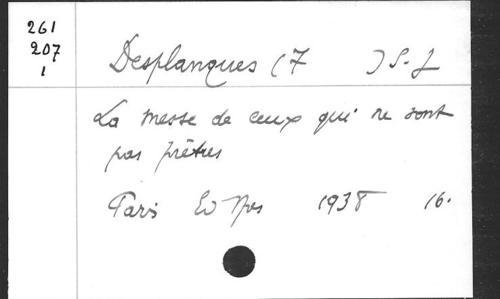 261
207
1
Desplanques (F ) S.J
La messe de ceux qui ne sont
pas prêtres
Paris 1938 16.